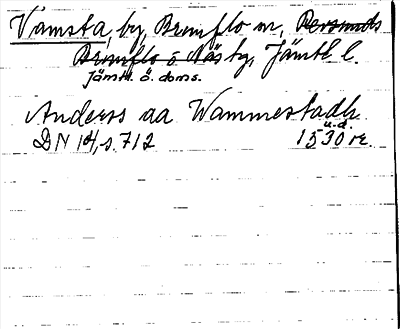 Vamsta, by, Brunflo sn, Revsunds
Brunflo o Näs tg, Jämtl. l.
Jämtl. ö. doms.
Anderss aa Wammestadh
DN 14, s. 712 1530 re.
u.d.